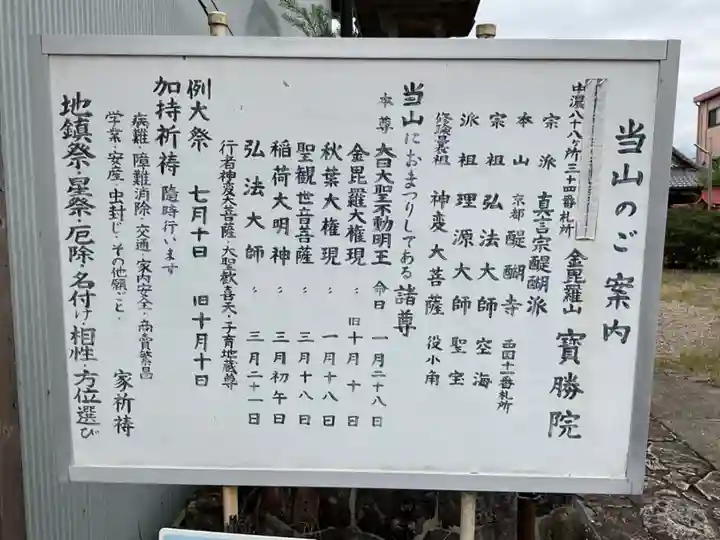 当山のご案内
中濃八十八ヶ所三十四番札所 金毘羅山 寳勝院
宗派 真言宗醍醐派
本山 京都 醍醐寺 西国十一番札所
宗祖 弘法大師 空海
派祖 理源大師 聖宝
修験最祖 神変大菩薩 役小角
当山におまつりしてある諸尊
本尊 大日大聖不動明王 命日 一月二十八日
金毘羅大権現 〃 旧十月十日
秋葉大権現 〃 一月十八日
聖観世音菩薩 〃 三月十八日
稲荷大明神 〃 三月初午日
弘法大師 〃 三月二十一日
行者神変大菩薩・大聖歓喜天・子育地蔵尊
例大祭 七月十日 旧十月十日
加持祈祷 随時行います
病難・障難消除・交通・家内安全・商賣繁昌
学業・安産・虫封じ・その他願ごと・ 家祈祷
地鎮祭・星祭・厄除・名付け・相性・方位選び